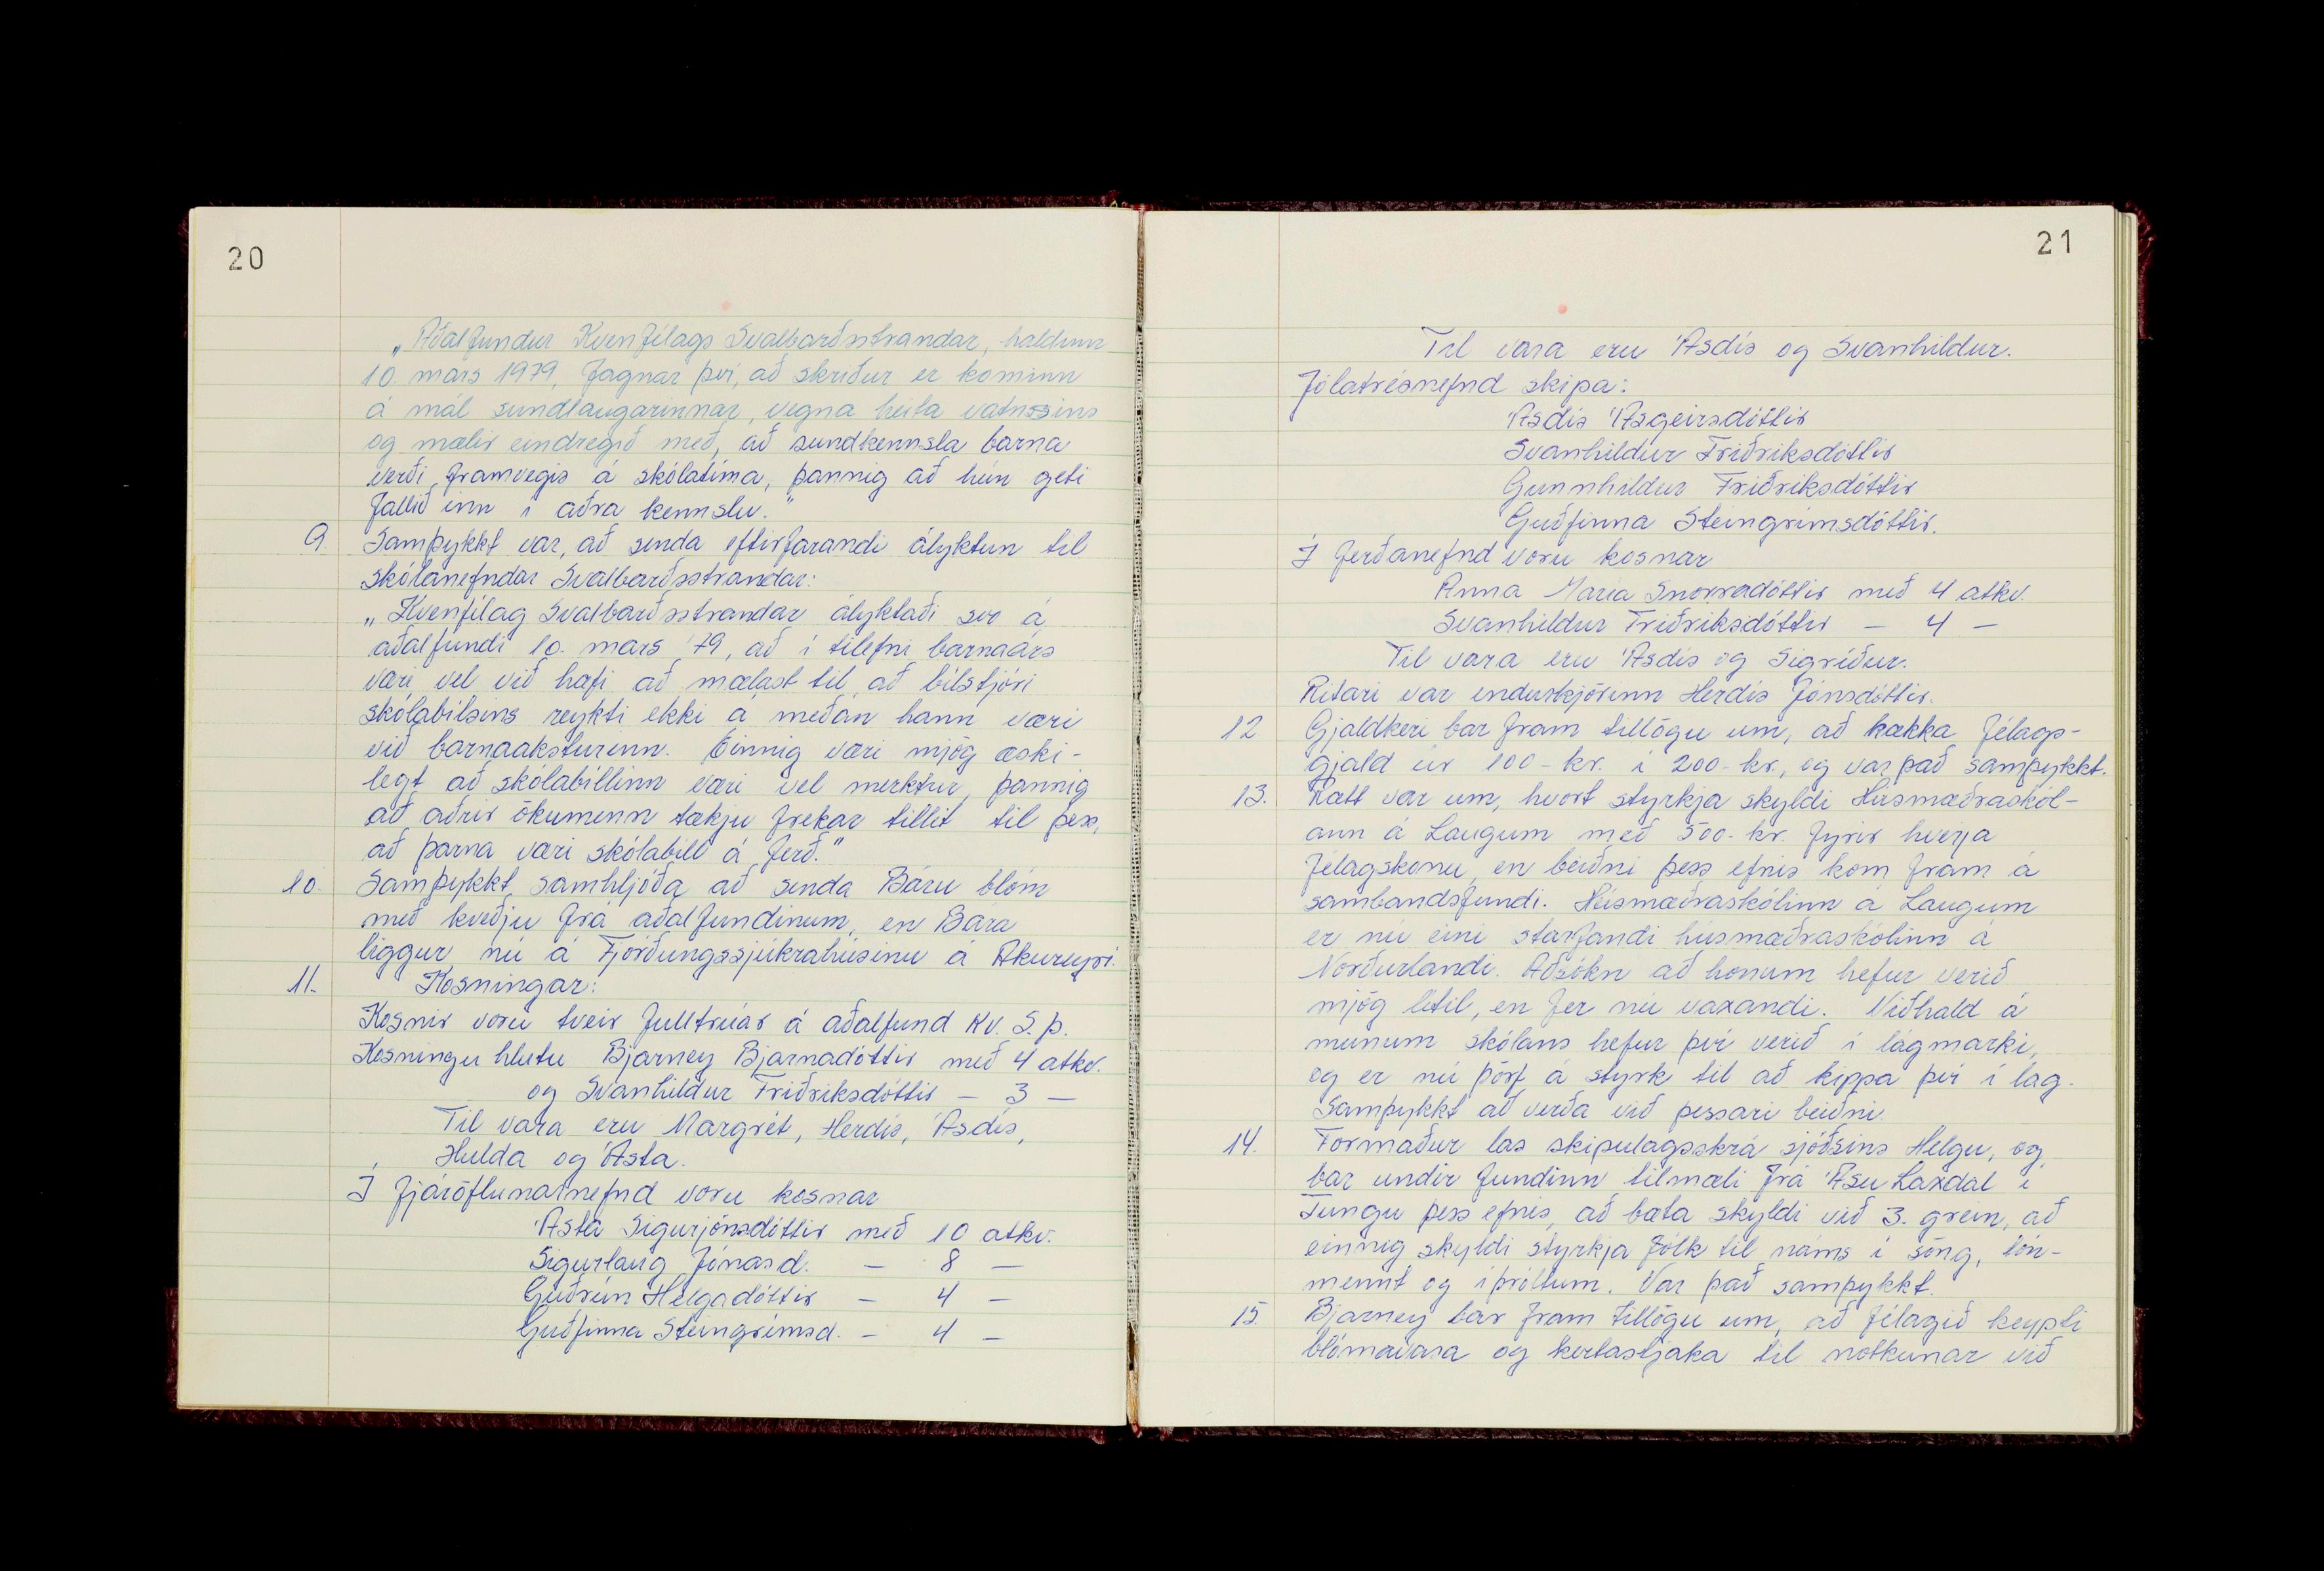 20
„Aðalfundur Kvenfélags Svalbarðsstrandar, haldinn
10. mars 1979, fagnar því, að skriður er kominn
á mál sundlaugarinnar, vegna heita vatnssins
og mælir eindregið með, að sundkennsla barna
verði framvegis á skólatíma, þannig að hún geti
fallið inn í aðra kennslu."
9. Samþykkt var, að senda eftirfarandi ályktun til
skólanefndar Svalbarðsstrandar:
„Kvenfélag Svalbarðsstrandar ályktaði svo á
aðalfundi 10. mars '79, að í tilefni barnaárs
væri vel við hæfi að mælast til að bílstjóri
skólabílsins reykti ekki á meðan hann væri
við barnaaksturinn. Einnig væri mjög æski-
legt að skólabíllinn væri vel merktur, þannig
að aðrir ökumenn tækju frekar tillit til þess,
að þarna væri skólabíll á ferð."
10. Samþykkt samhljóða að senda Báru blóm
með kveðju frá aðalfundinum, en Bára
liggur nú á Fjórðungssjúkrahúsinu á Akureyri.
11. Kosningar:
Kosnir voru tveir fulltrúar á aðalfund Kv. S.Þ.
Kosningu hlutu Bjarney Bjarnadóttir með 4 atkv.
og Svanhildur Friðriksdóttir – 3 –
Til vara eru Margrét, Herdís, Ásdís,
Hulda og Ásta.
Í fjáröflunarnefnd voru kosnar
Ásta Sigurjónsdóttir með 10 atkv.
Sigurlaug Jónasd. – 8 –
Guðrún Helgadóttir – 4 –
Guðfinna Steingrímsd. – 4 –
21
Til vara eru Ásdís og Svanhildur.
Jólatrésnefnd skipa:
Ásdís Ásgeirsdóttir
Svanhildur Friðriksdóttir
Gunnhildur Friðriksdóttir
Guðfinna Steingrímsdóttir.
Í ferðanefnd voru kosnar
Anna María Snorradóttir með 4 atkv.
Svanhildur Friðriksdóttir – 4 –
Til vara eru Ásdís og Sigríður.
Ritari var endurkjörinn Herdís Jónsdóttir.
12 Gjaldkeri bar fram tillögu um, að hækka félags-
gjald úr 100-kr. í 200-kr., og var það samþykkt.
13. Rætt var um, hvort styrkja skyldi Húsmæðraskól-
ann á Laugum með 500-kr. fyrir hverja
félagskonu, en beiðni þess efnis kom fram á
sambandsfundi. Húsmæðraskólinn á Laugum
er nú eini starfandi húsmæðraskólinn á
Norðurlandi. Aðsókn að honum hefur verið
mjög lítil, en fer nú vaxandi. Viðhald á
munum skólans hefur því verið í lágmarki,
og er nú þörf á styrk til að kippa því í lag.
Samþykkt að verða við þessari beiðni.
14. Formaður las skipulagsskrá sjóðsins Helgu, og
bar undir fundinn tilmæli frá Ásu Laxdal í
Tungu þess efnis, að bæta skyldi við 3. grein, að
einnig skyldi styrkja fólk til náms í söng, tón-
mennt og íþróttum. Var það samþykkt.
15. Bjarney bar fram tillögu um, að félagið keypti
blómavasa og kertastjaka til notkunar við